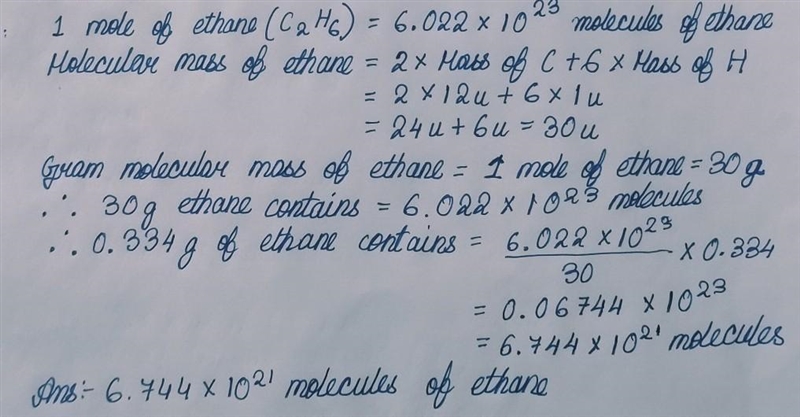 1 mole of ethane (C₂H₆) = 6.022 × 10²³ molecules of ethane
Molecular mass of ethane = 2 × Mass of C + 6 × Mass of H
= 2 × 12u + 6 × 1u
= 24u + 6u = 30u
Gram molecular mass of ethane = 1 mole of ethane = 30g
∴ 30g ethane contains = 6.022 × 10²³ molecules
∴ 0.334g of ethane contains = 6.022 × 10²³ / 30 × 0.334
= 0.06744 × 10²³
= 6.744 × 10²¹ molecules
Ans:- 6.744 × 10²¹ molecules of ethane